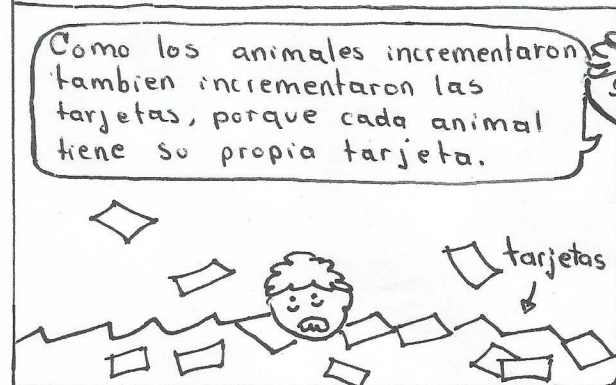 Como los animales incrementaron
tambien incrementaron las
tarjetas, porque cada animal
tiene su propia tarjeta.
tarjetas